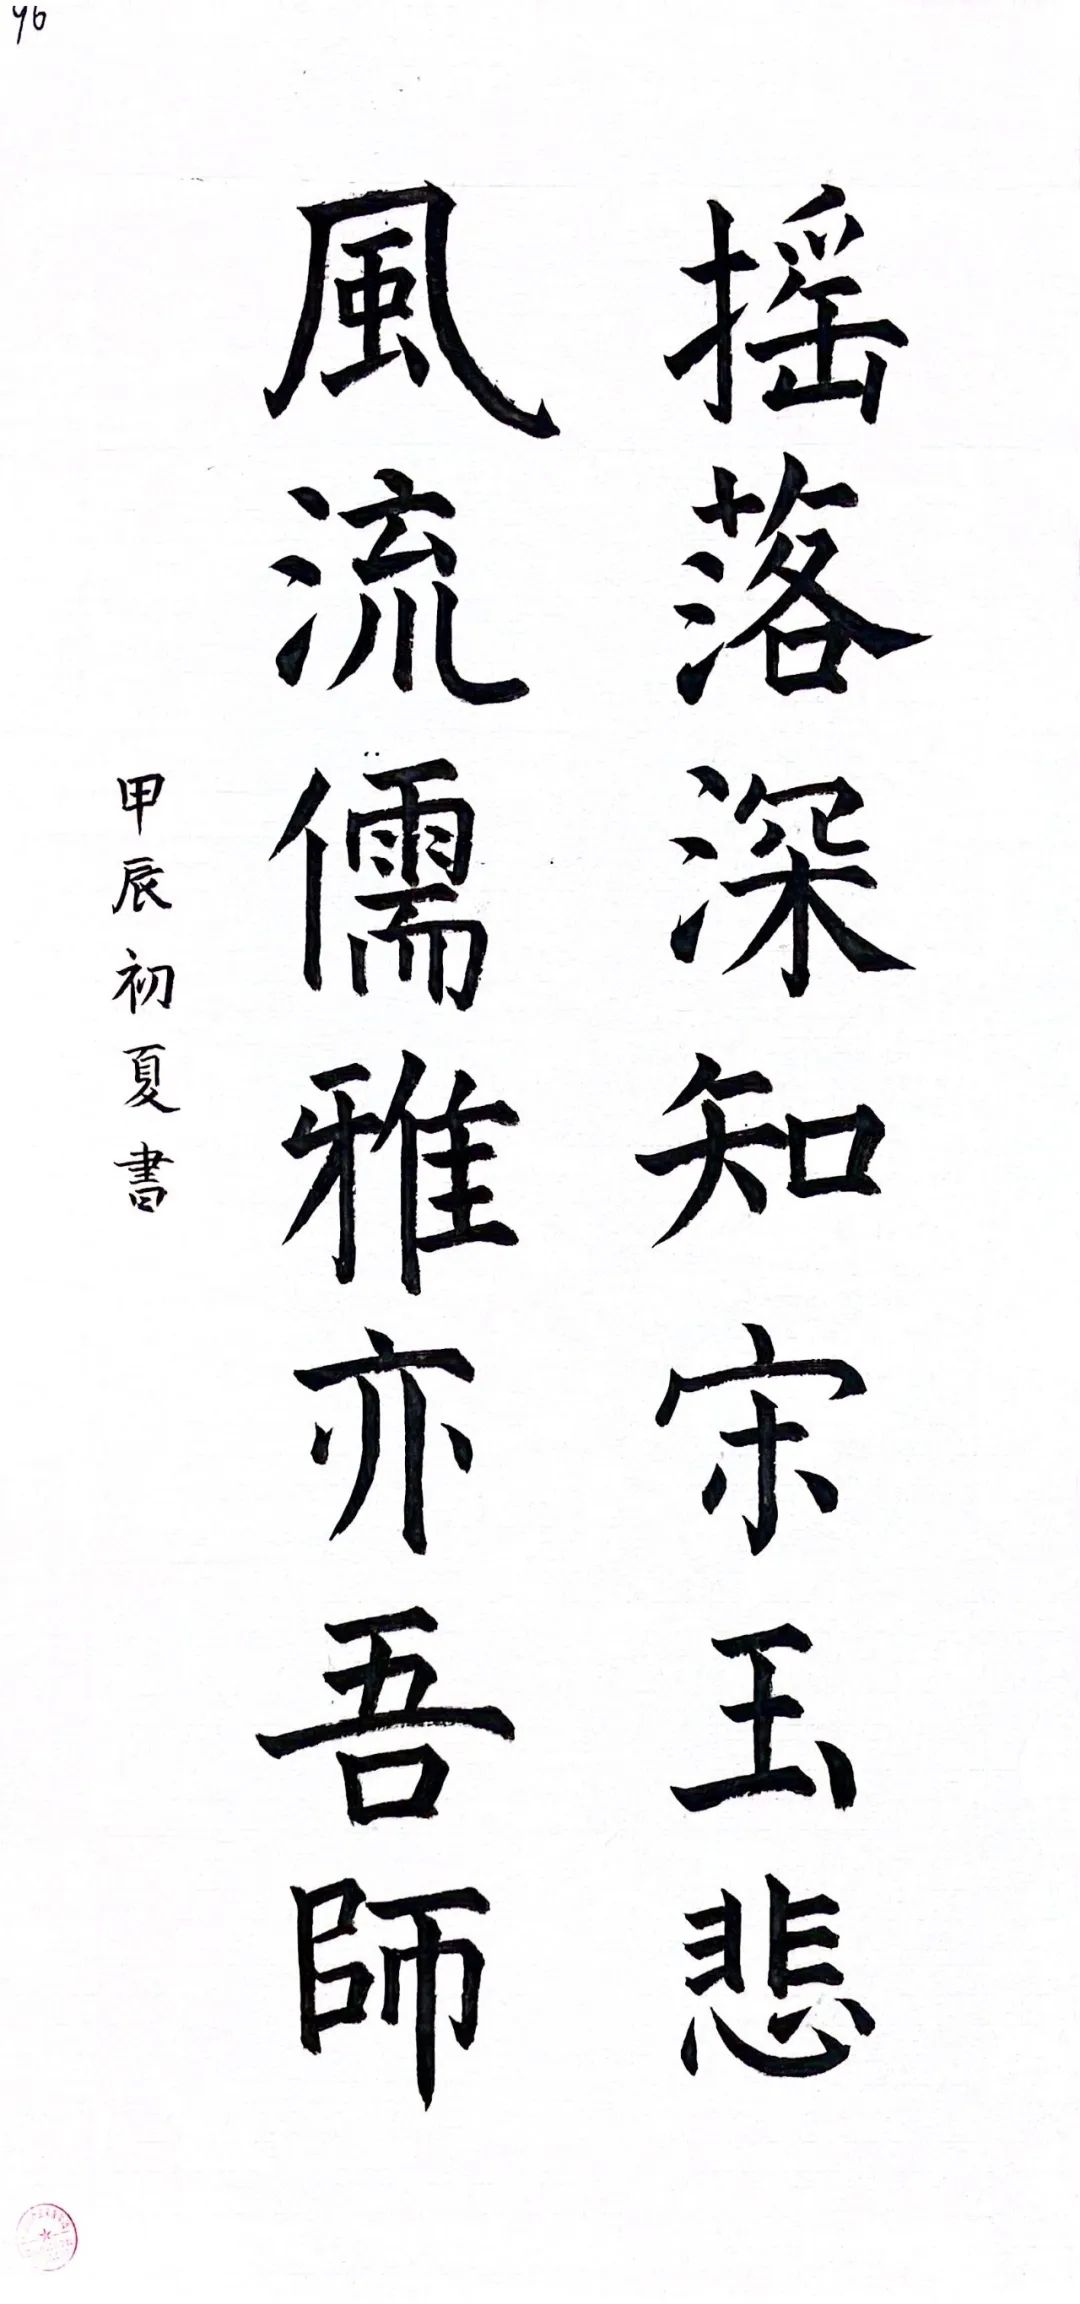 46
摇落深知宋玉悲
風流儒雅亦吾師
甲辰初夏書